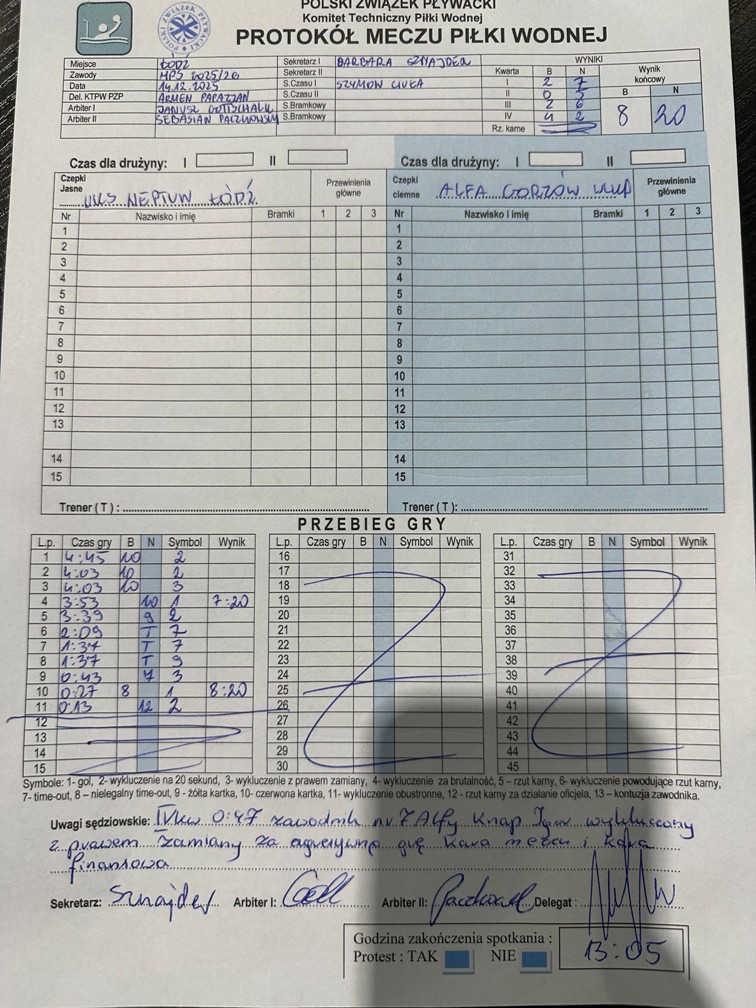 POLSKI ZWIĄZEK PŁYWACKI
Komitet Techniczny Piłki Wodnej
PROTOKÓŁ MECZU PIŁKI WODNEJ
Miejsce ŁÓDŹ Sekretarz I BARBARA SZNAJDER WYNIKI
Zawody MPJ 2025/26 Sekretarz II Kwarta B N Wynik końcowy
Data 14.12.2025 S.Czasu I SZYMON I 2 7 B N
Del. KTPW PZP ARMEN PAPAZJAN S.Czasu II II 0 5 8 20
Arbiter I JANUSZ GOTTSCHALK S.Bramkowy III 2 6
Arbiter II SEBASIAN PACZKOWSKI S.Bramkowy IV 4 2
Rz. karne
Czas dla drużyny: I II Czas dla drużyny: I II
Czepki Jasne UKS NEPTUN ŁÓDŹ Przewinienia główne Czepki ciemne ALFA GORZÓW WLKP Przewinienia główne
Nr Nazwisko i imię Bramki 1 2 3 Nr Nazwisko i imię Bramki 1 2 3
1 1
2 2
3 3
4 4
5 5
6 6
7 7
8 8
9 9
10 10
11 11
12 12
13 13
14 14
15 15
Trener ( T ) : Trener ( T ) :
PRZEBIEG GRY
L.p. Czas gry B N Symbol Wynik L.p. Czas gry B N Symbol Wynik L.p. Czas gry B N Symbol Wynik
1 4:45 10 2 16 31
2 4:03 10 2 17 32
3 4:03 10 3 18 33
4 3:53 10 1 7:20 19 34
5 3:39 9 2 20 35
6 2:09 T 7 21 36
7 1:37 T 7 22 37
8 1:37 T 9 23 38
9 0:43 7 3 24 39
10 0:27 8 1 8:20 25 40
11 0:13 12 2 26 41
12 27 42
13 28 43
14 29 44
15 30 45
Symbole: 1- gol, 2- wykluczenie na 20 sekund, 3- wykluczenie z prawem zamiany, 4- wykluczenie za brutalność, 5 – rzut karny, 6- wykluczenie powodujące rzut karny,
7- time-out, 8 – nielegalny time-out, 9 - żółta kartka, 10- czerwona kartka, 11- wykluczenie obustronne, 12 - rzut karny za działanie oficjela, 13 – kontuzja zawodnika.
Uwagi sędziowskie: IV kw 0:47 zawodnik nr 7 Alfy Knap Igor wykluczony
z prawem zamiany za agresywną grę kara meczu i kara
finansowa
Sekretarz: Sznajder Arbiter I: Arbiter II: Delegat :
Godzina zakończenia spotkania : 13:05
Protest : TAK NIE